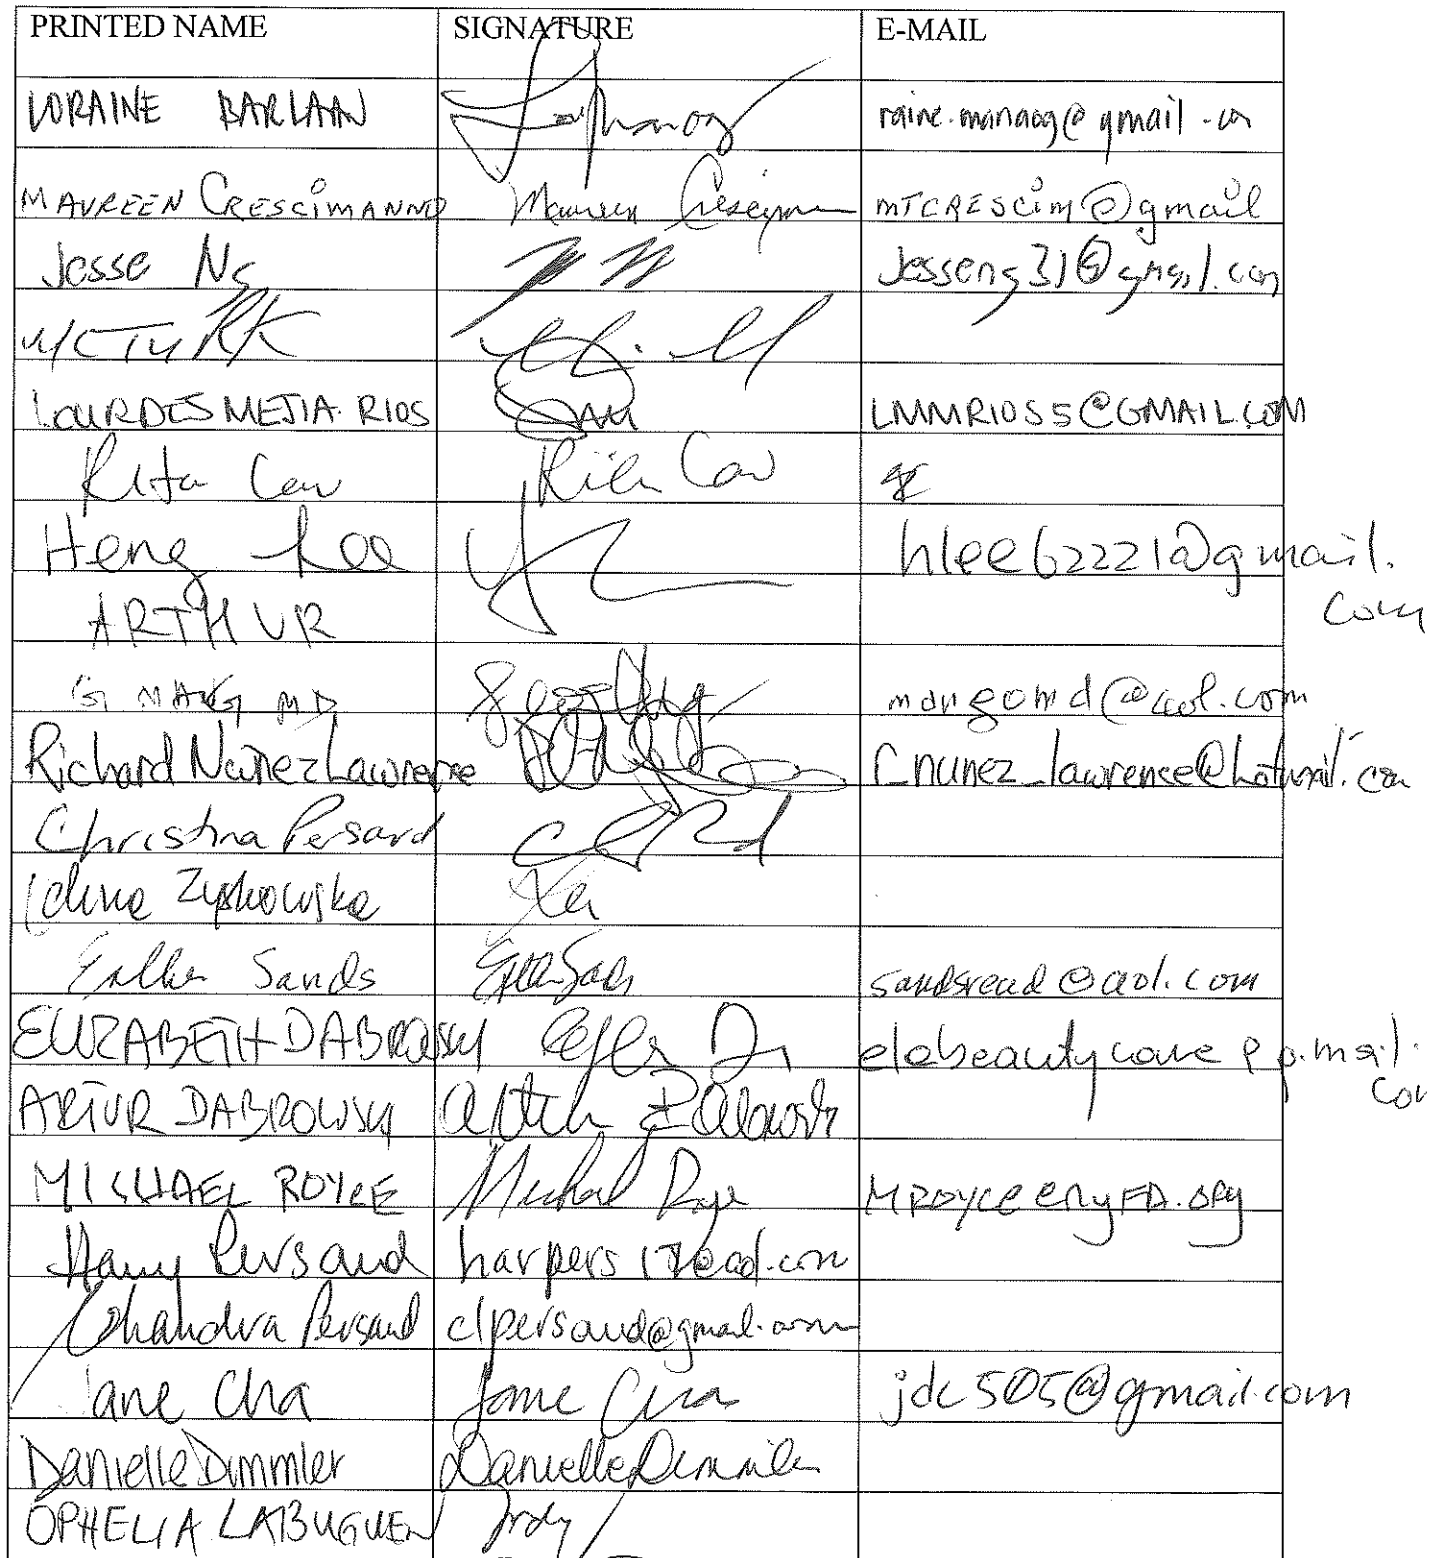 PRINTED NAME SIGNATURE E-MAIL
LORAINE BARLAAN raine.manaog@gmail.com
MAUREEN CRESCIMANNO Maureen mTCRESCim@gmail
Jesse Ng Jesseng31@gmail.com
LOURDES MEJIA-RIOS LMMRIOS5@GMAIL.COM
Rita
Heng Lee hlee62221@gmail.
com
ARTHUR
G MANG MD mangomd@aol.com
Richard Nunez Lawrence r_nunez_lawrence@hotmail.com
Christina Persaud
Zyskowska
Esther Sands sandsread@aol.com
ELIZABETH DABROWSKI elabeautycare@gmail.
com
ARTUR DABROWSKI
MICHAEL ROYCE Michael Royce MROYCE@NYFA.ORG
Persaud
Chandra Persaud clpersaud@gmail.com
Jane Cha Jane Cha jdc505@gmail.com
Danielle Dimmler Danielle Dimmler
OPHELIA LABUGUEN